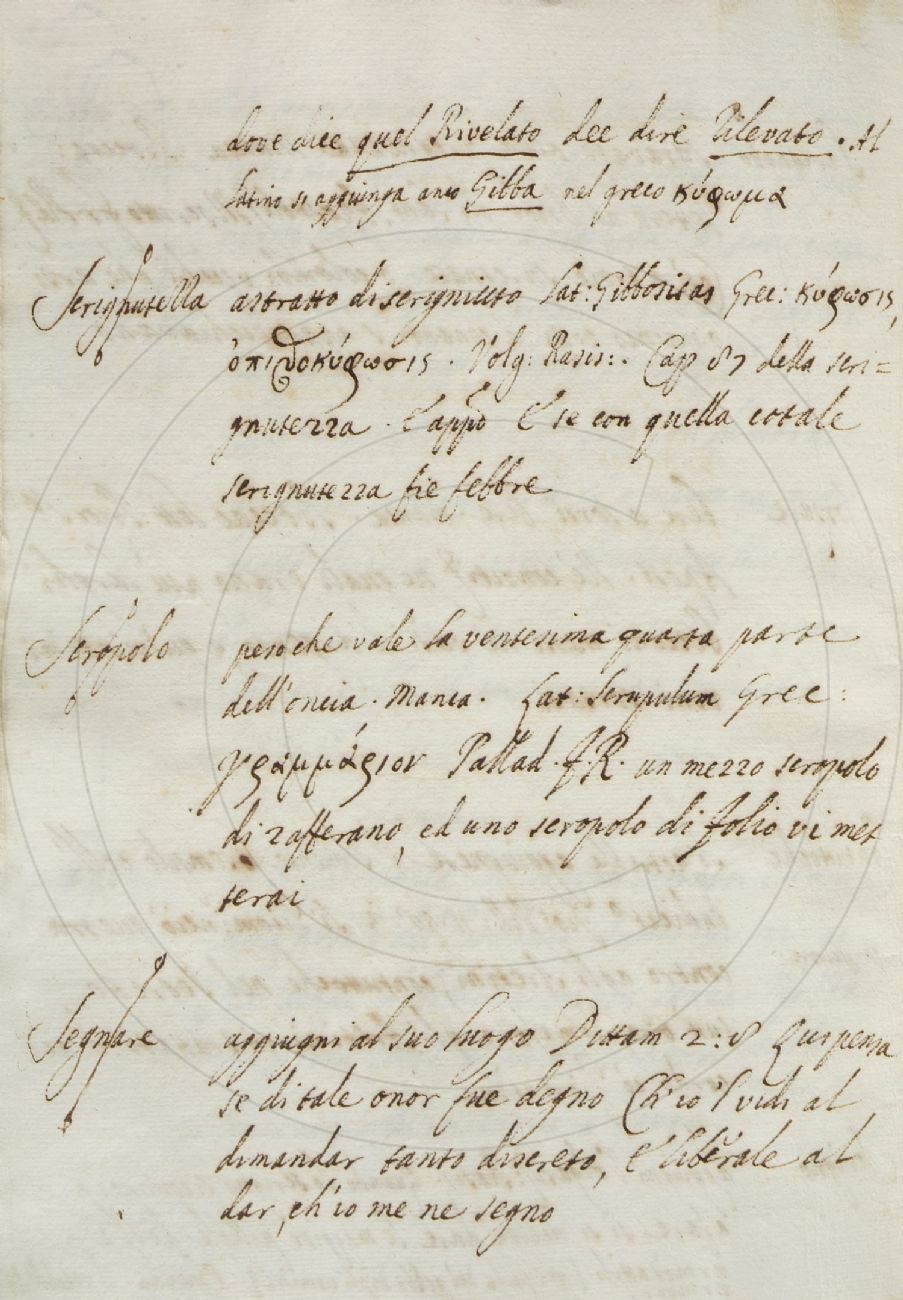 dove dice quel Rivelato dee dire Rilevato. Al
latino si aggiunga anco Gibba nel greco κύφωμα
Serignutezza astratto di serignuto Lat: Gibbositas Grec: κύφωσις,
ὀπισθοκύφωσις. Volg: Rasis:. Cap 87 della seri=
gnutezza. E app.o E se con quella cotale
serignutezza fie febbre
Scropolo peso che vale la ventesima quarta parte
dell'oncia. Manca. Lat: Scrupulum Grec:
γραμμάριον Pallad. F.R. un mezzo scropolo
di zafferano, ed uno scropolo di folio vi met
terai
Segnare aggiugni al suo luogo Dittam 2:8 Qui pensa
se di tale onor fue degno Ch'io 'l vidi al
dimandar tanto discreto, E liberale al
dar, ch'io me ne segno